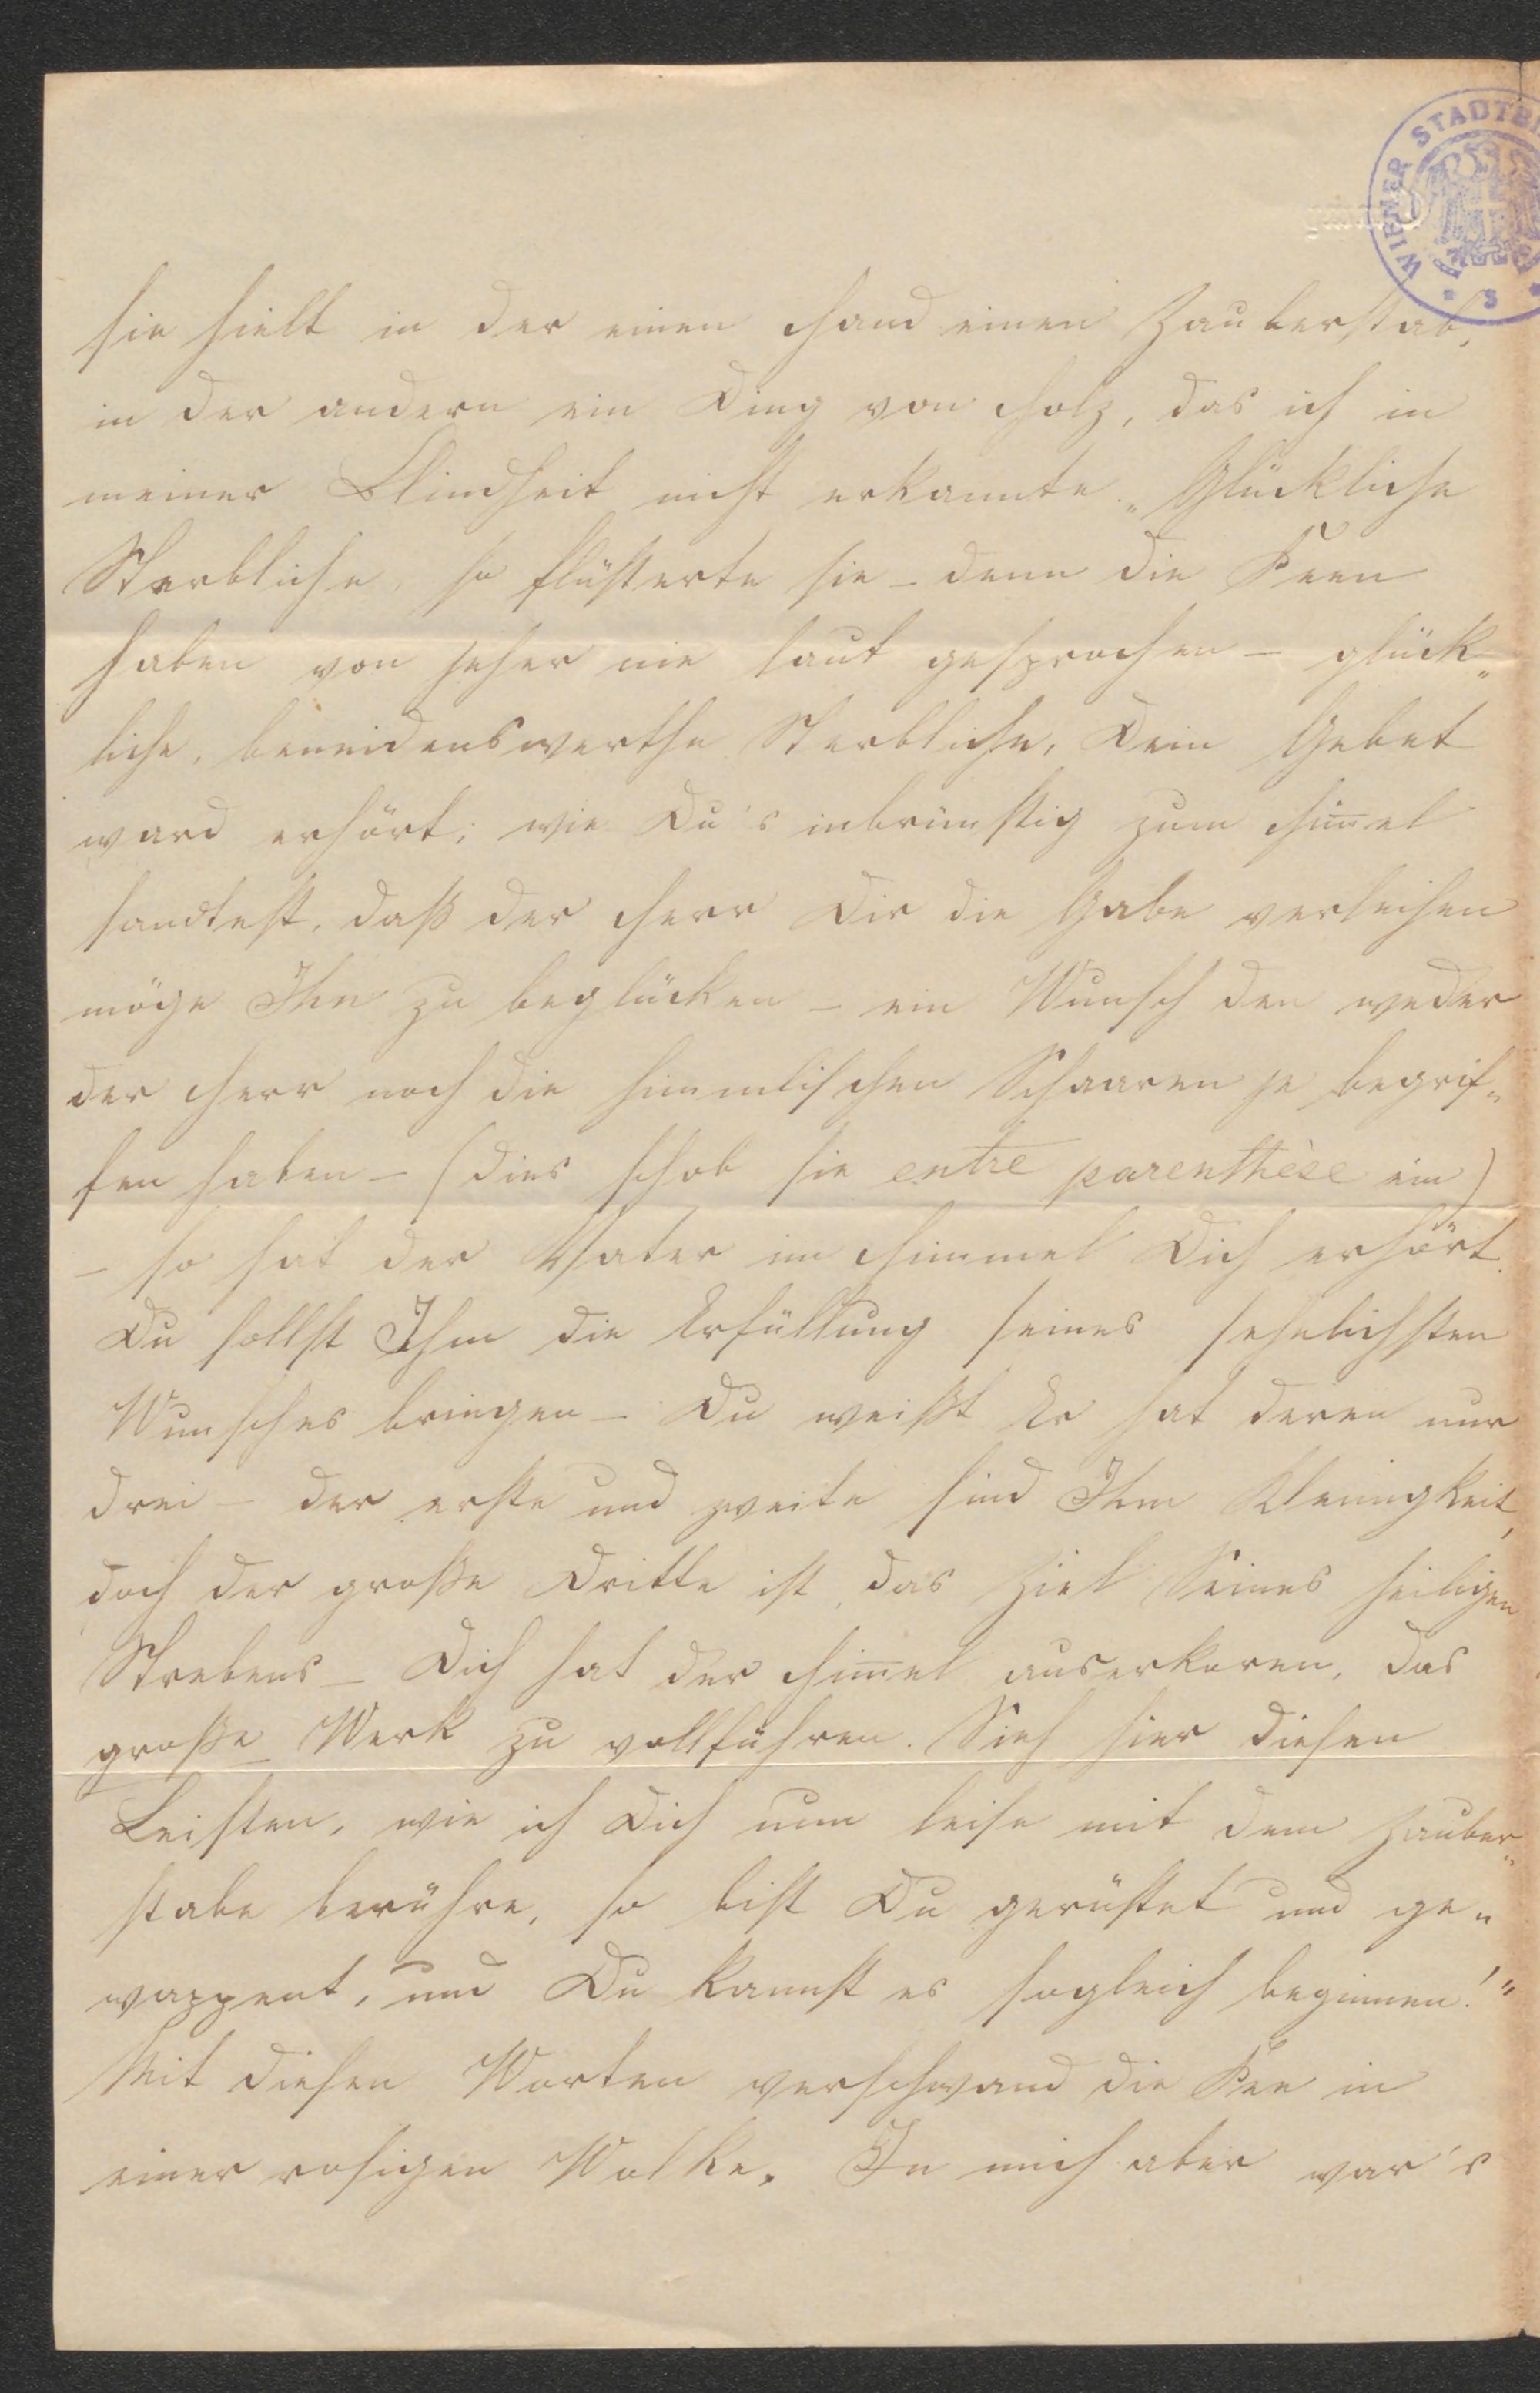 WIENER STADTBI
* S *
sie hielt in der einen Hand einen Zauberstab,
in der andern ein Ding von Holz, das ich in
meiner Blindheit nicht erkannte. „Glückliche
Sterbliche, so flüsterte sie – denn die Feen
haben von jeher nie laut gesprochen – glück„
liche, beneidenswerthe Sterbliche, Dein Gebet
ward erhört; wie Du's inbrünstig zum Him̅el
sandtest, daß der Herr Dir die Gabe verleihen
möge Ihn zu beglücken – ein Wunsch den weder
der Herr noch die himmlischen Schaaren je begrif„
fen haben – (dies schob sie entre parenthèse ein)
– so hat der Vater im Himmel Dich erhört.
Du sollst Ihm die Erfüllung seines sehnlichsten
Wunsches bringen – Du weißt Er hat deren nur
drei – der erste und zweite sind Ihm Kleinigkeit,
doch der große Dritte ist das Ziel Seines heiligen
Strebens – Dich hat der Him̅el auserkoren, das
große Werk zu vollführen. Sieh hier diesen
Leisten, wie ich Dich nun leise mit dem Zauber„
stabe berühre, so bist Du gerüstet und ge„
wappent, und Du kannst es sogleich beginnen!"
Mit diesen Worten verschwand die Fee in
einer rosigen Wolke. In mich aber war's